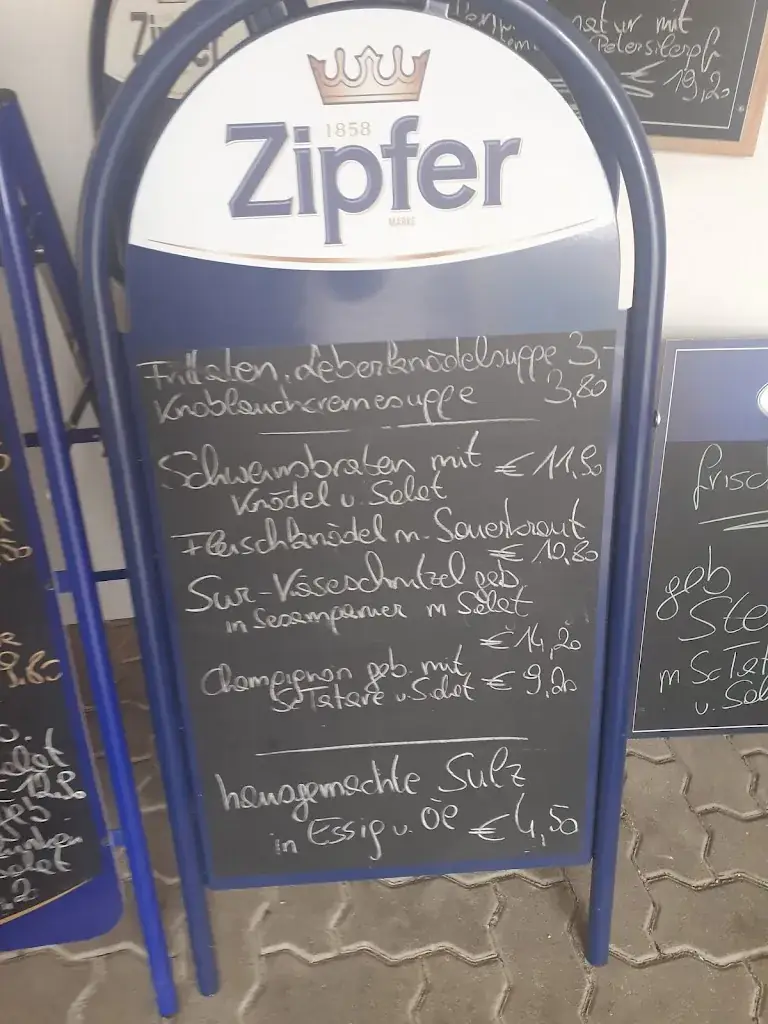 Zipfer
1858
Zipfer
MARKE
natur mit
Petersilerpf
€ 19,20
Frittaten, Leberknödelsuppe 3,-
Knoblauchcremesuppe 3,80
Schweinsbraten mit € 11,50
Knödel u. Salat
Fleischknödel m. Sauerkraut
€ 10,80
Sur-Käseschnitzel geb
in Sesampanier m Salat
€ 14,20
Champignon geb. mit € 9,20
Sc Tatare u. Salat
hausgemachte Sulz
in Essig u. Öl € 4,50
frisc
geb
Ste
m Sc Tat
u. Sal